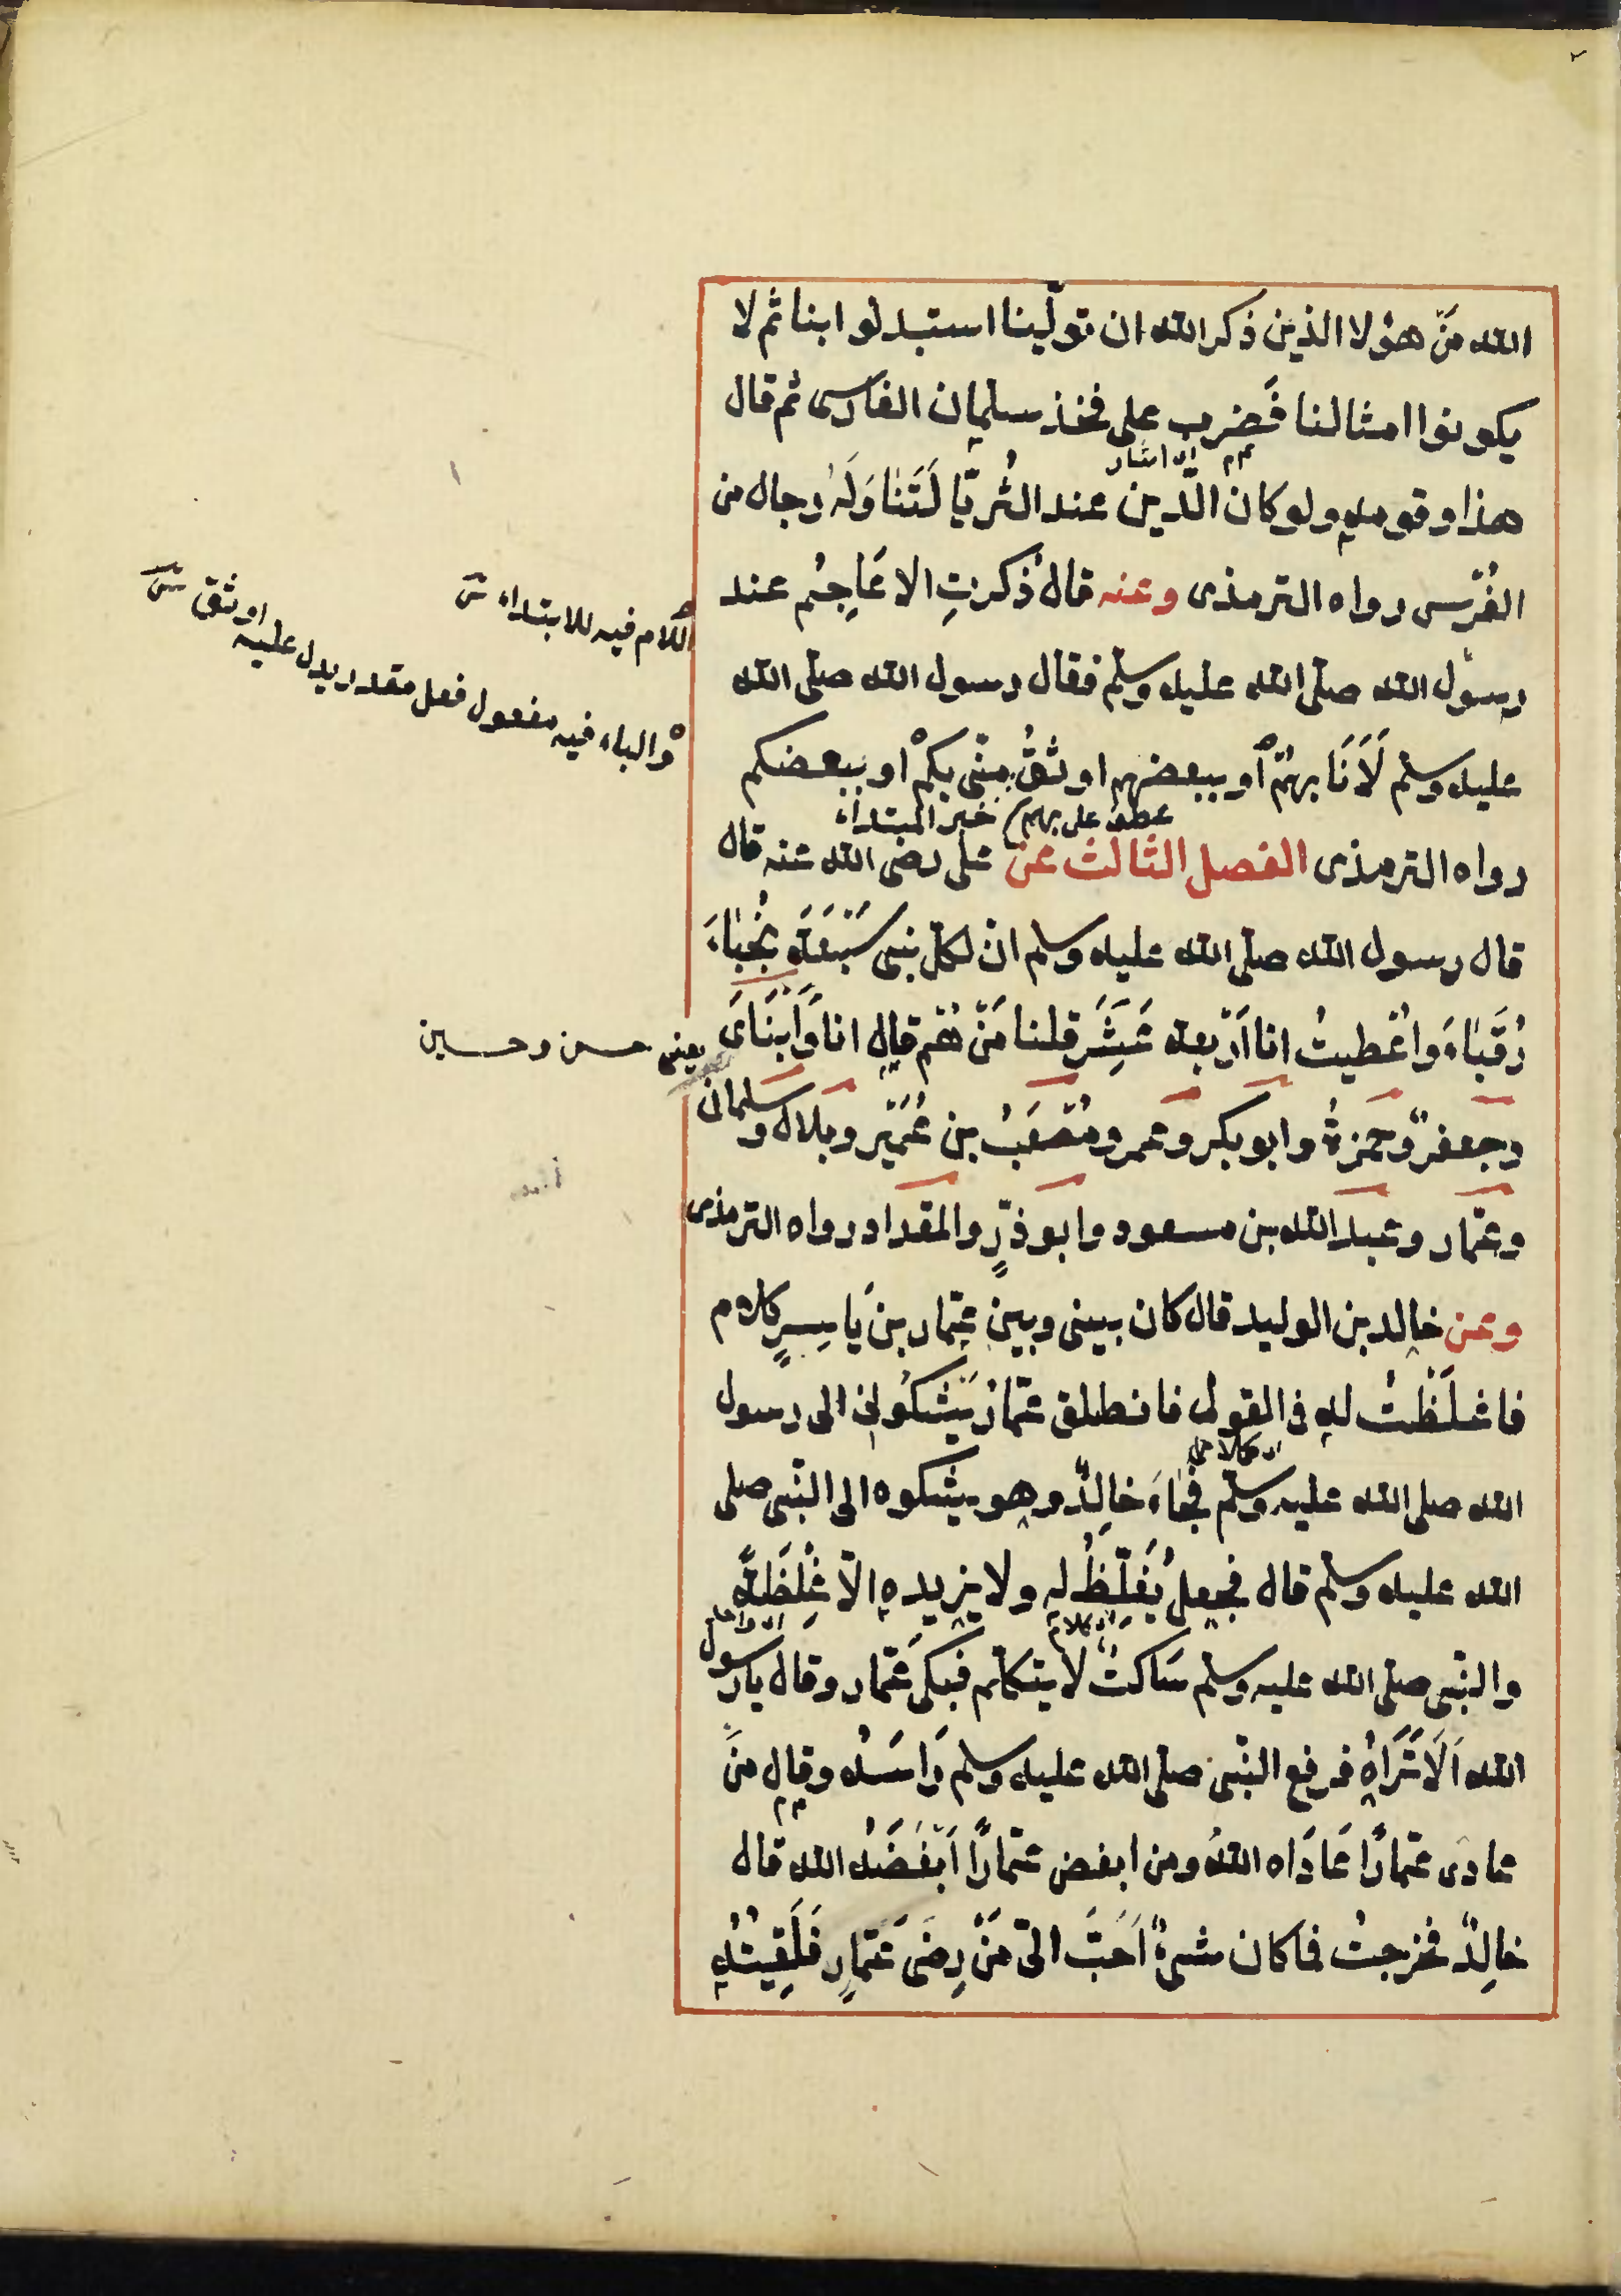 الله مَنْ هؤلا الذين ذكر الله ان تولّينا استبدلوا بنا ثم لا
يكونوا امثالنا فَضرب على فخذ سلمان الفارسى ثم قال
هذا وقومه ولو كان الدّين عند الثُريّا لَتَنٰاوَلَهُ رجال من
الفُرْسِ رواه الترمذى وعنه قال ذُكرتِ الاعَاجِمُ عند
رسول الله صلى الله عليه وسلم فقال رسول الله صلى الله
عليه وسلم لَاَنَا بهِمْ اَو ببعضهم اوثقُ مِنّى بكمْ او ببعضكم
عطف على بهم خبر المبتداء
رواه الترمذى الفصل الثالث عن على رضى الله عنه قال
قال رسول الله صلى الله عليه وسلم انّ لكل نبى سَبْعَةَ نُجَبٰاءَ
رُقَبٰاءَ واُعْطيتُ انا اَرْبعة عَشَرَ قلنا مَنْ هُم قال انا وَابْنَاىَ
يعنى حسن وحسين
وجعفرٌ وحمزةُ وابو بكر وعمر ومُصْعَبُ بن عُمَيْر وبلال وسلمان
وعمّار وعبد الله بن مسعود وابو ذرٍّ والمقداد رواه الترمذى
وعن خالد بن الوليد قال كان بينى وبين عمّار بن يَاسِرٍ كلام
فاغلَظْتُ له فى القول فانطلق عمّار يَشْكُونى الى رسول
الله صلى الله عليه وسلم فجٰاءَ خالِدٌ وهو يشكوه الى النّبى صلى
الله عليه وسلم قال فجعل يُغَلِّظُ له ولا يزيده الّا غِلْظَةً
والنّبى صلى الله عليه وسلم سَاكتٌ لا يتكلم فبكى عَمّار وقال يا رسول
الله اَلَا تَرَاهُ فرفع النّبى صلى الله عليه وسلم رَاسَهُ وقال مَنْ
عادى عمّارًا عَادَاه اللهُ ومن ابغض عمّارًا اَبْغَضَهُ الله قال
خالِدٌ فخرجتُ فما كان شىءٌ اَحَبَّ الىّ مَنْ رِضَى عَمّارٍ فَلَقِيتُهُ
اللام فيه للابتداء
والباء فيه مفعول فعل مقدر يدل عليه اوثق